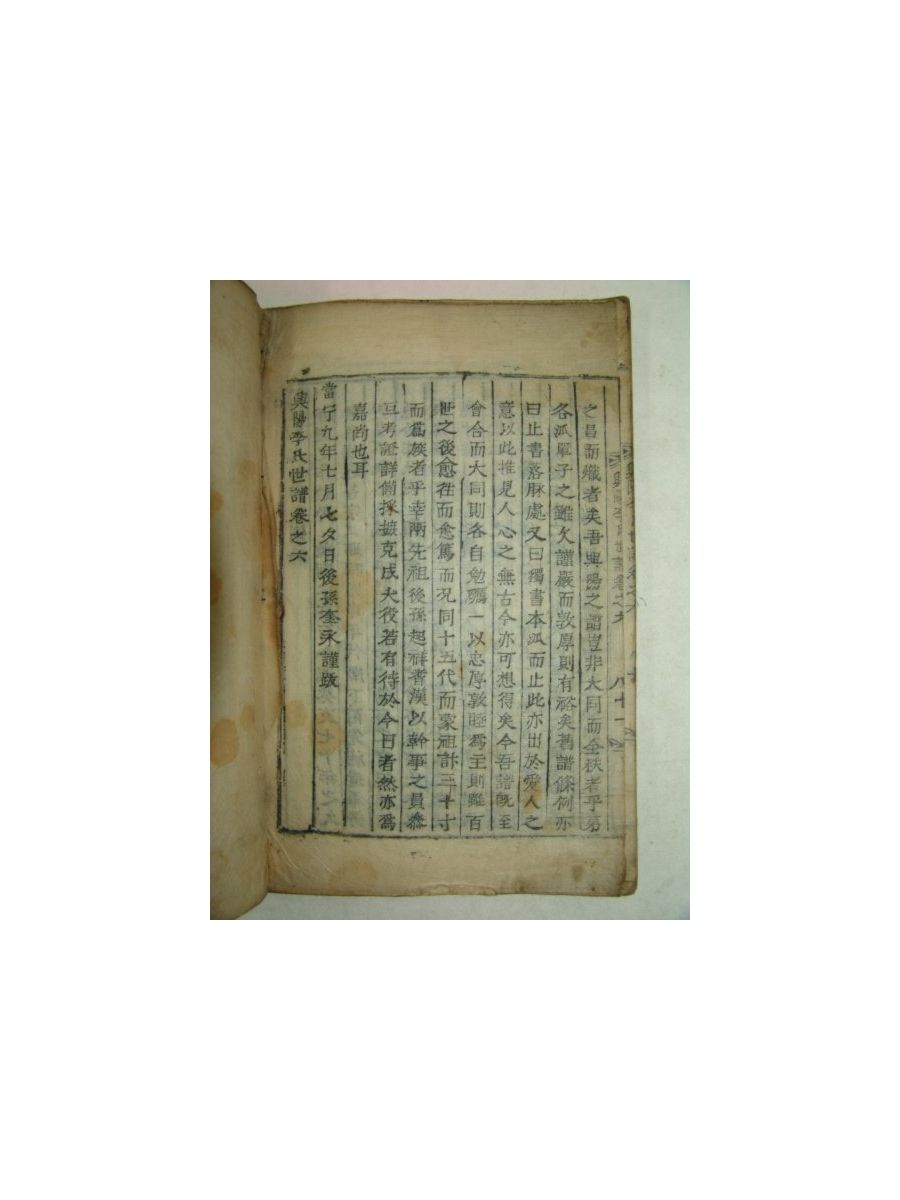 之昌而熾者矣吾興陽之譜豈非大同而全秩者乎第
各派單子之雖欠謹嚴而敦厚則有裕矣舊譜條例亦
曰止書落脉處又曰獨書本派而止此亦出於愛人之
意以此推見人心之無古今亦可想得矣今吾譜旣至
會合而大同則各自勉礪一以忠厚敦睦爲主則雖百
世之後愈徃而愈篤而况同十五代而蒙祖計三十寸
而爲族者乎幸兩先祖後孫起祥香漢以幹事之員叅
互考證詳備採摭克成大役若有待於今日者然亦爲
嘉尚也耳
當宁九年七月七夕日後孫奎永謹跋
興陽李氏世譜卷之六
興陽李氏世譜卷之六 八十一